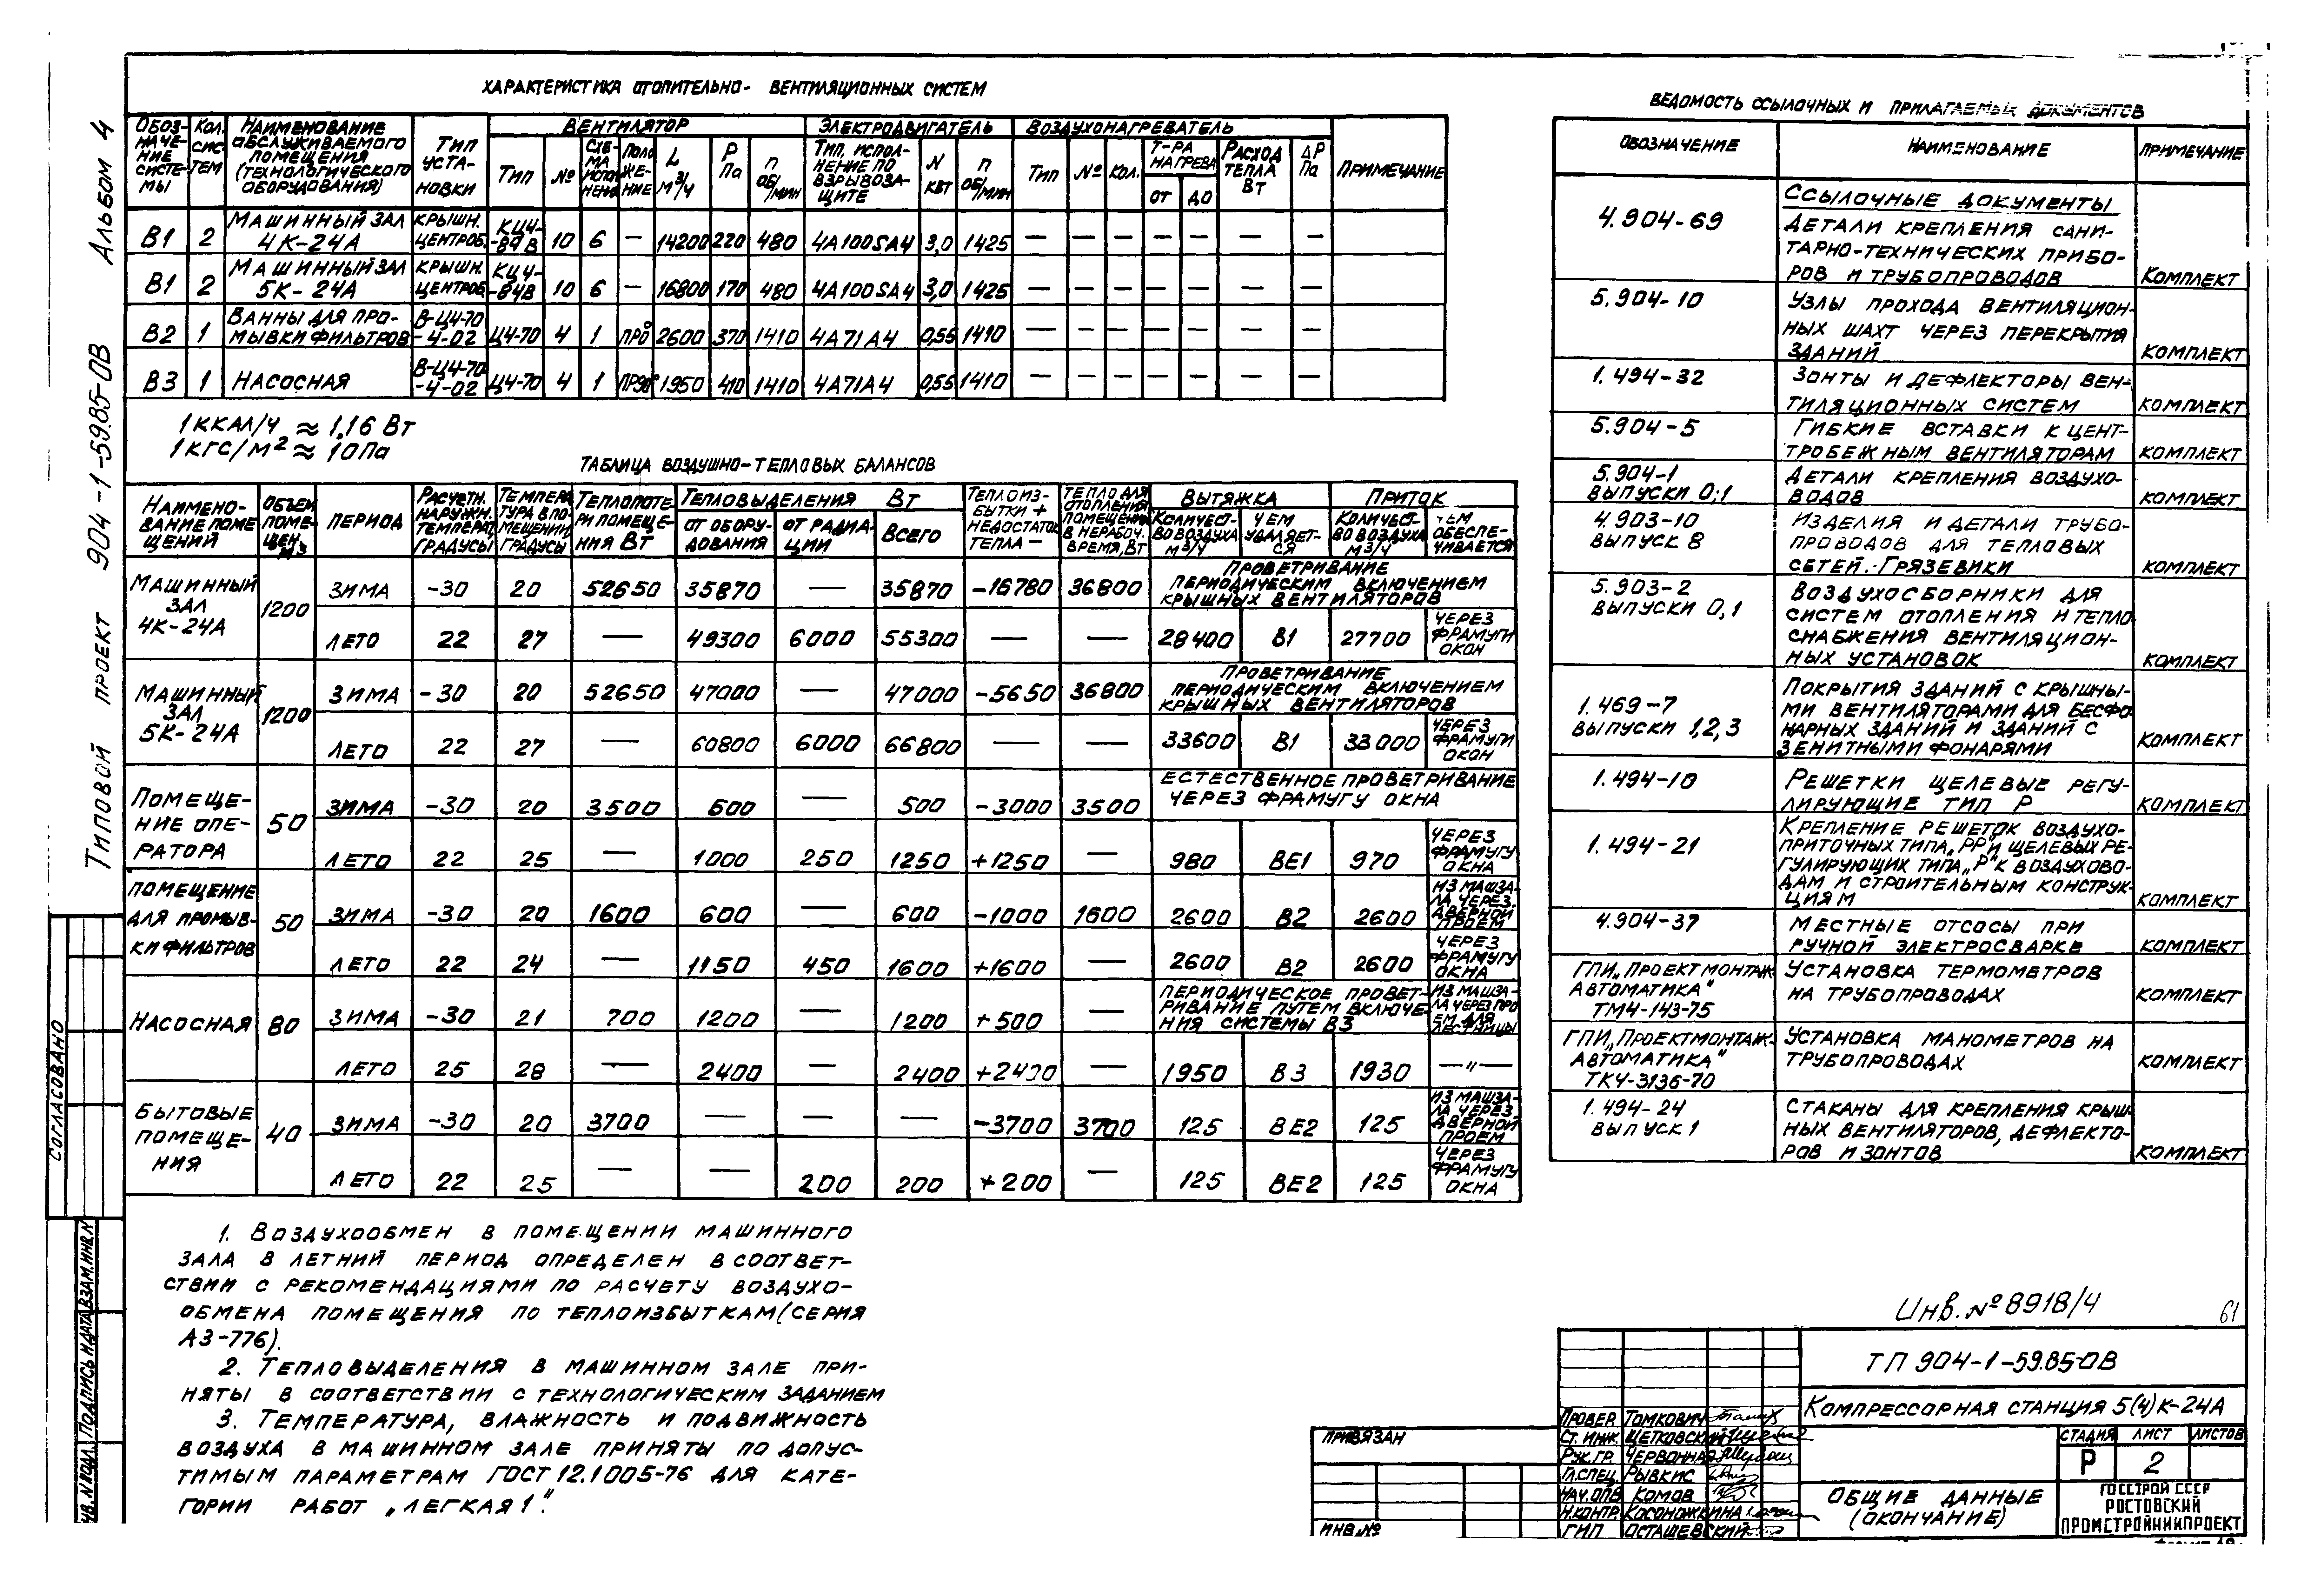 Альбом 4
Типовой проект 904-1-59.85-ОВ
Характеристика отопительно- вентиляционных систем
Обоз-наче-ние систе-мы | Кол. сис-тем | Наименование обслуживаемого помещения (технологического оборудования) | Тип уста-новки | Вентилятор | Электродвигатель | Воздухонагреватель | Примечание
Тип | № | Схе-ма испол-нения | Поло-же-ние | L м³/ч | Р Па | n об/мин | Тип, испол-нение по взрывоза-щите | N кВт | n об/мин | Тип | № | Кол. | Т-ра нагрева от до | Расход тепла Вт | ΔР Па
В1 | 2 | Машинный зал 4К-24А | Крышн. центроб. | КЦ4--84В | 10 | 6 | — | 14200 | 220 | 480 | 4А100SА4 | 3,0 | 1425 | — | — | — | — | — | — | —
В1 | 2 | Машинный зал 5К-24А | Крышн. центроб. | КЦ4--84В | 10 | 6 | — | 16800 | 170 | 480 | 4А100SА4 | 3,0 | 1425 | — | — | — | — | — | — | —
В2 | 1 | Ванны для про-мывки фильтров | В-Ц4-70-4-02 | Ц4-70 | 4 | 1 | Пр0° | 2600 | 370 | 1410 | 4А71А4 | 0,55 | 1410 | — | — | — | — | — | — | —
В3 | 1 | Насосная | В-Ц4-70-4-02 | Ц4-70 | 4 | 1 | Пр90° | 1950 | 410 | 1410 | 4А71А4 | 0,55 | 1410 | — | — | — | — | — | — | —
1ккал/ч ≈ 1,16 Вт
1кгс/м² ≈ 10Па
Таблица воздушно-тепловых балансов
Наимено-вание поме-щений | Объем поме-щен. м3 | Период | Расчетн. наружн. температ. градусы | Темпера-тура в по-мещении, градусы | Теплопоте-ри помеще-ния Вт | Тепловыделения Вт | Теплоиз-бытки + недостаток тепла — | Тепло для отопления помещения в нерабоч. время, Вт | Вытяжка | Приток
от обору-дования | от радиа-ции | Всего | Количест-во воздуха м3/ч | Чем удаляет-ся | Количест-во воздуха м3/ч | Чем обеспе-чивается
Машинный зал 4К-24А | 1200 | Зима | -30 | 20 | 52650 | 35870 | — | 35870 | -16780 | 36800 | Проветривание периодическим включением крышных вентиляторов
Лето | 22 | 27 | — | 49300 | 6000 | 55300 | — | — | 28400 | В1 | 27700 | Через фрамуги окон
Машинный зал 5К-24А | 1200 | Зима | -30 | 20 | 52650 | 47000 | — | 47000 | -5650 | 36800 | Проветривание периодическим включением крышных вентиляторов
Лето | 22 | 27 | — | 60800 | 6000 | 66800 | — | — | 33600 | В1 | 33000 | Через фрамуги окон
Помеще-ние опе-ратора | 50 | Зима | -30 | 20 | 3500 | 600 | — | 500 | -3000 | 3500 | Естественное проветривание через фрамугу окна
Лето | 22 | 25 | — | 1000 | 250 | 1250 | +1250 | — | 980 | ВЕ1 | 970 | Через фрамугу окна
Помещение для промыв-ки фильтров | 50 | Зима | -30 | 20 | 1600 | 600 | — | 600 | -1000 | 1600 | 2600 | В2 | 2600 | Из машза-ла через дверной проем
Лето | 22 | 24 | — | 1150 | 450 | 1600 | +1600 | — | 2600 | В2 | 2600 | Через фрамугу окна
Насосная | 80 | Зима | -30 | 21 | 700 | 1200 | — | 1200 | +500 | — | Периодическое провет-ривание путем включе-ния системы В3 | Из машза-ла через про-ем для лестницы
Лето | 25 | 28 | — | 2400 | — | 2400 | +2400 | — | 1950 | В3 | 1930 | —"—
Бытовые помеще-ния | 40 | Зима | -30 | 20 | 3700 | — | — | — | -3700 | 3700 | 125 | ВЕ2 | 125 | Из машза-ла через дверной проем
Лето | 22 | 25 | — | — | 200 | 200 | +200 | — | 125 | ВЕ2 | 125 | Через фрамугу окна
1. Воздухообмен в помещении машинного
зала в летний период определен в соответ-
ствии с рекомендациями по расчету воздухо-
обмена помещения по теплоизбыткам (серия
А3-776).
2. Тепловыделения в машинном зале при-
няты в соответствии с технологическим заданием
3. Температура, влажность и подвижность
воздуха в машинном зале приняты по допус-
тимым параметрам ГОСТ 12.1005-76 для кате-
гории работ „Легкая 1".
Ведомость ссылочных и прилагаемых документов
Обозначение | Наименование | Примечание
Ссылочные документы
4.904-69 | Детали крепления сани-
тарно-технических прибо-
ров и трубопроводов | Комплект
5.904-10 | Узлы прохода вентиляцион-
ных шахт через перекрытия
зданий | Комплект
1.494-32 | Зонты и дефлекторы вен-
тиляционных систем | Комплект
5.904-5 | Гибкие вставки к цент-
тробежным вентиляторам | Комплект
5.904-1 выпуски 0;1 | Детали крепления воздухо-
водов | Комплект
4.903-10 выпуск 8 | Изделия и детали трубо-
проводов для тепловых
сетей. Грязевики | Комплект
5.903-2 выпуски 0,1 | Воздухосборники для
систем отопления и тепло-
снабжения вентиляцион-
ных установок | Комплект
1.469-7 выпуски 1,2,3 | Покрытия зданий с крышны-
ми вентиляторами для бесфо-
нарных зданий и зданий с
зенитными фонарями | Комплект
1.494-10 | Решетки щелевые регу-
лирующие тип Р | Комплект
1.494-21 | Крепление решеток воздухо-
приточных типа „РР" и щелевых ре-
гулирующих типа „Р" к воздухово-
дам и строительным конструк-
циям | Комплект
4.904-37 | Местные отсосы при
ручной электросварке | Комплект
ГПИ „Проектмонтаж-автоматика" ТМ4-143-75 | Установка термометров
на трубопроводах | Комплект
ГПИ „Проектмонтаж-автоматика" ТК4-3136-70 | Установка манометров на
трубопроводах | Комплект
1.494-24 выпуск 1 | Стаканы для крепления крыш-
ных вентиляторов, дефлекто-
ров и зонтов | Комплект
Инв. № 8918/4
61
ТП 904-1-59.85-ОВ
Компрессорная станция 5(4)К-24А
Провер. Томкович
Ст. инж. Щетковский
Рук. гр. Червонная
Гл. спец. Рывкис
Нач. ОПВ Комов
Н. контр. Косоножкина
ГИП Осташевский
Стадия | Лист | Листов
Р | 2
Общие данные
(окончание)
Госстрой СССР
Ростовский
Промстройниипроект
Привязан
Инв №
Согласовано
Взам. инв. №
Подпись и дата
Инв. № подл.